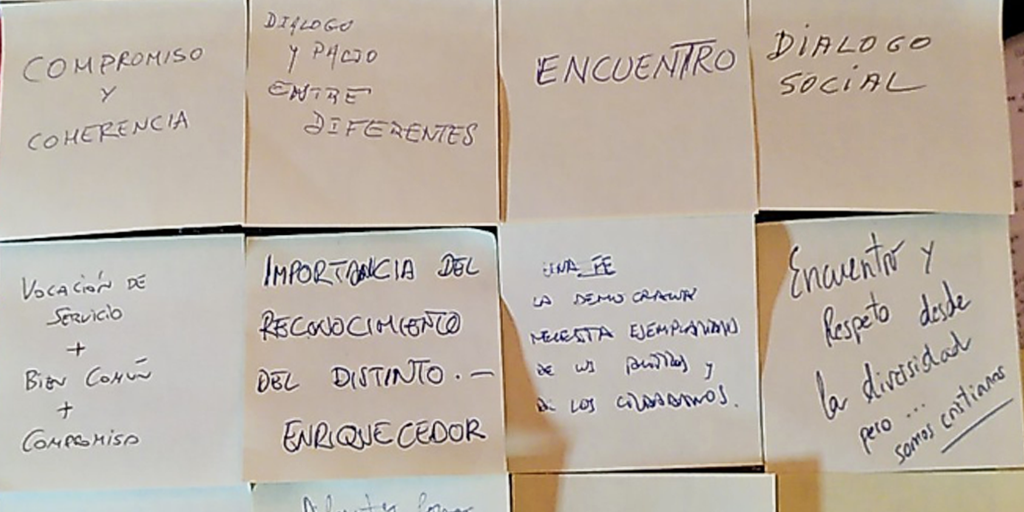 COMPROMISO
Y
COHERENCIA
DIALOGO
Y PACTO
ENTRE
DIFERENTES
ENCUENTRO
DIALOGO
SOCIAL
VOCACIÓN DE
SERVICIO
+
BIEN COMÚN
+
COMPROMISO
IMPORTANCIA DEL
RECONOCIMIENTO
DEL DISTINTO.—
ENRIQUECEDOR
UNA FE
LA DEMOCRACIA
NECESITA EJEMPLARIDAD
DE LOS POLÍTICOS Y
DE LOS CIUDADANOS.
Encuentro y
Respeto desde
la diversidad
pero ...
somos cristianos